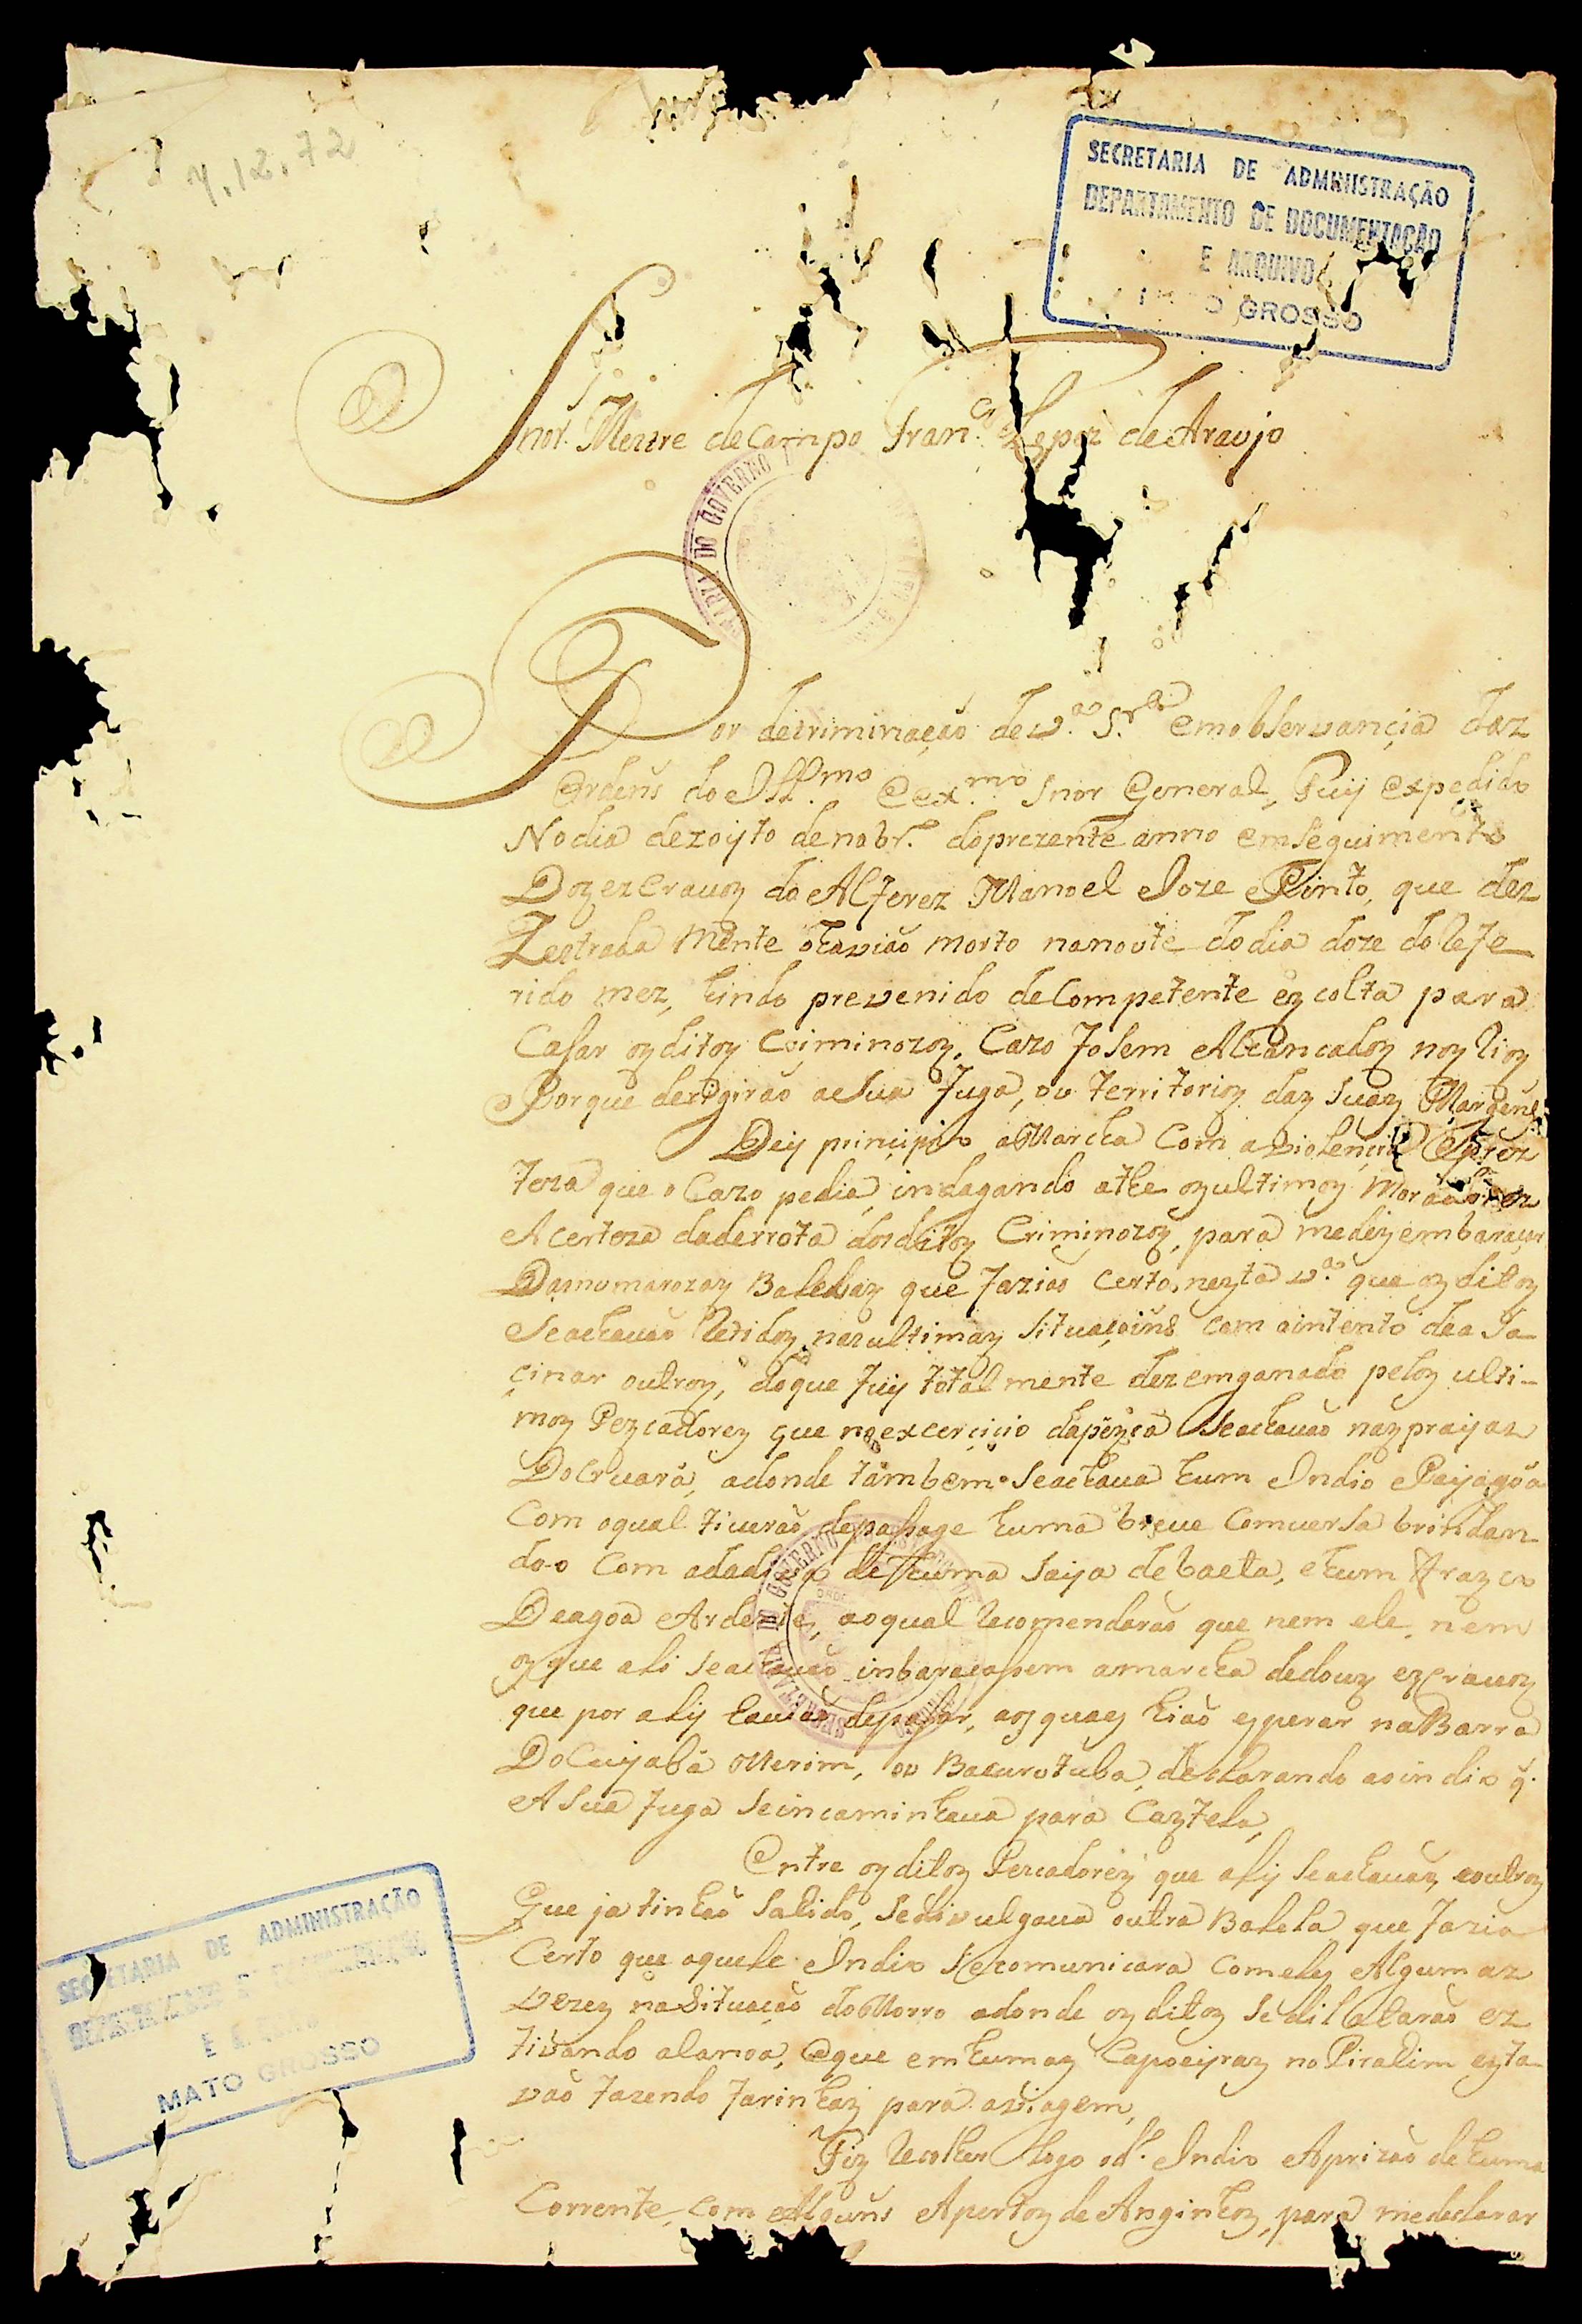 7.12.72
SECRETARIA DE ADMINISTRAÇÃO
DEPARTAMENTO DE DOCUMENTAÇÃO
E ARQUIVO
GROSSO
Snor. Mestre de Campo Fran.co Lopez de Araujo
DO GOVERNO
Por detriminação de v.a S.ra e em observançia daz
Ordeñs do Ill.mo e ex.mo Snor General, Fuy expedido
No dia dezoyto de nobr.o do prezente anno em seguimento
Doz ezcravoz do Alferez Manoel Joze Pinto, que dez
Zestrada mente o havião morto na noute do dia doze do Refe
rido mez, hindo prevenido de Competente ezcolta para
Casar oz ditoz Criminozoz, Cazo fosem Alcancadoz noz Rioz
Porque derigirão a sua fuga, ou territorioz daz suaz Margeñs
Dey prinçipio a Marcha Com a violençia e prez
teza que o Cazo pedia, indagando athe oz ultimoz Moradorez
A certeza da derrota dos ditoz Criminozoz, para me dezembaraçar
Da numarozaz Balelaz que fazião certo, nezta v.a que oz ditoz
Se achavão Retidoz naz ultimaz Situaçoiñs com o intento de a sa-
çinar outroz, do que fuy total mente dezemganado peloz ulti-
moz Pezcadorez que no exerçiçio da pezca se achavão naz prayaz
Do Cruará, adonde tambem se achava hum Indio Payagoa
Com o qual tiverão de pasage huma breve Comversa brindan-
do-o Com a dadiva de huma Saya de baeta, e hum frazco
De agoa Ardente, ao qual Recomendarão que nem ele, nem
oz que ali se achavão inbaracasem a marcha de douz ezcravoz
que por aly havião de pasar, aoz quaez hião ezperar na Barra
Do Cuyabá Merim, ou Bacurutuba, declarando ao indio q.
A sua fuga se incaminhava para Caztela,
Entre oz ditoz Pezcadorez que aly se achavão, e outroz
Que ja tinhão Sahido, se divulgava outra Balela que fazia
Certo que aquele Indio se comunicara Com elez Algumaz
vezez na Situação do Morro adonde oz ditoz se dilatarão ez
tivando a Canoa, e que em humaz Capoeyraz no Pirahim ezta-
vão fazendo farinhaz para a viagem,
Fiz Recolher logo o d.o Indio A prizão de huma
Corrente, com Alguñs Apertoz de Anginhoz, para me declarar
SECRETARIA DO GOVERNO
SECRETARIA DE ADMINISTRAÇÃO
E
MATO GROSSO